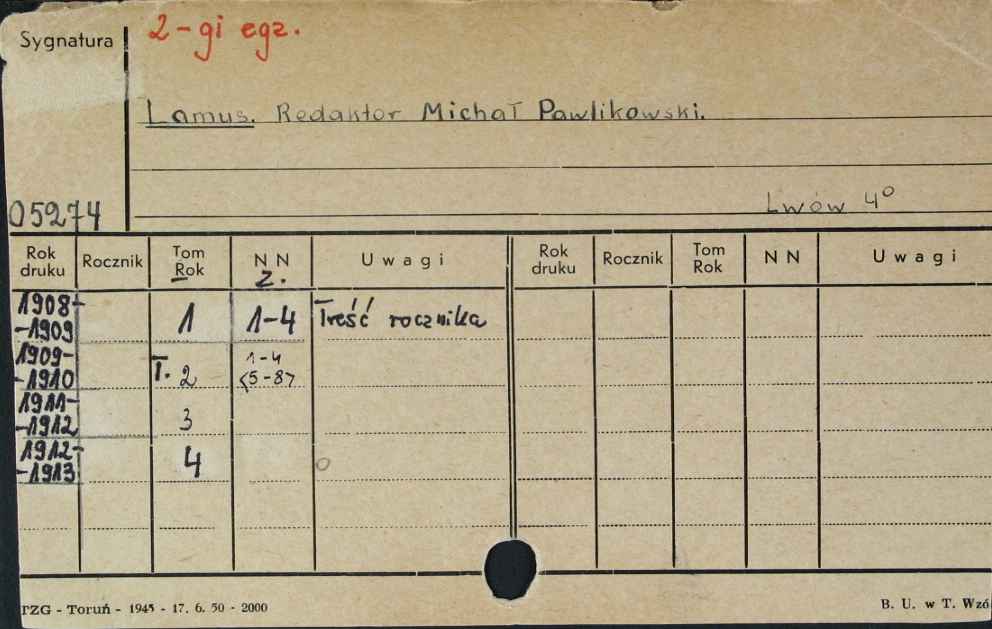 Sygnatura
2-gi egz.
Lamus. Redaktor Michał Pawlikowski.
Lwów 4°
05274
Rok druku Rocznik Tom Rok NN Z. Uwagi Rok druku Rocznik Tom Rok NN Uwagi
1908-
-1909 1 1-4 Treść rocznika
1909-
-1910 T. 2 1-4
<5-8>
1911-
-1912 3
1912-
-1913 4
TZG - Toruń - 1945 - 17. 6. 50 - 2000
B. U. w T. Wzó